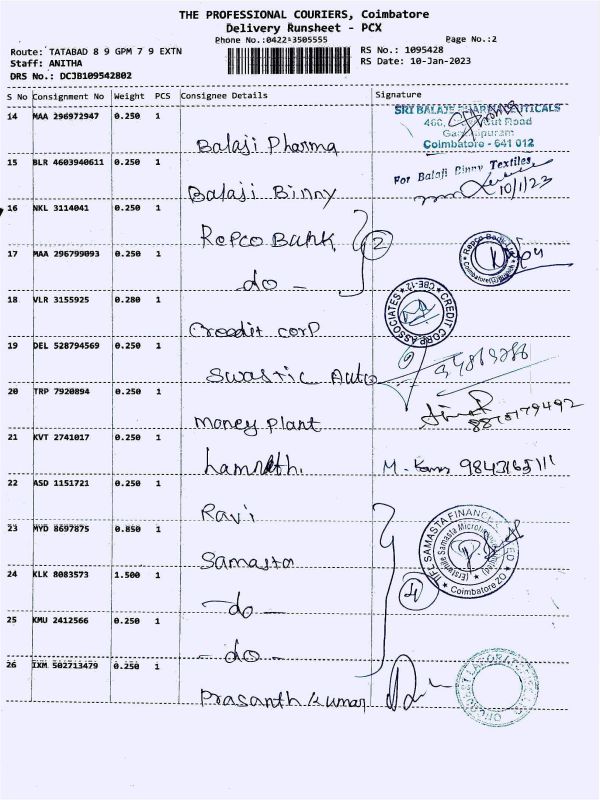 THE PROFESSIONAL COURIERS, Coimbatore
Delivery Runsheet - PCX
Phone No.:0422-3505555
Page No.:2
Route: TATABAD 8 9 GPM 7 9 EXTN
RS No.: 1095428
Staff: ANITHA
RS Date: 10-Jan-2023
DRS No.: DCJB109542802
S No Consignment No Weight PCS Consignee Details Signature
14 MAA 296972947 0.250 1
SRI BALAJI PHARMACEUTICALS
Road
Coimbatore - 641 012
Balaji Pharma
15 BLR 4603940611 0.250 1
For Balaji Binny Textiles
10/1/23
Balaji Binny
16 NKL 3114041 0.250 1
Repco Bank
2
17 MAA 296799093 0.250 1
do
18 VLR 3155925 0.280 1
CREDIT CORP ASSOCIATES CBE-12
Creedit corp
19 DEL 528794569 0.250 1
Swastic Auto
20 TRP 7920894 0.250 1
Money Plant
21 KVT 2741017 0.250 1
M. 9843165111
22 ASD 1151721 0.250 1
Ravi
23 MYD 8697875 0.850 1
IIFL SAMASTA FINANCE LIMITED
Coimbatore ZO
Samasta
24 KLK 8083573 1.500 1
do
4
25 KMU 2412566 0.250 1
do
26 IXM 502713479 0.250 1
Prasanth Kumar